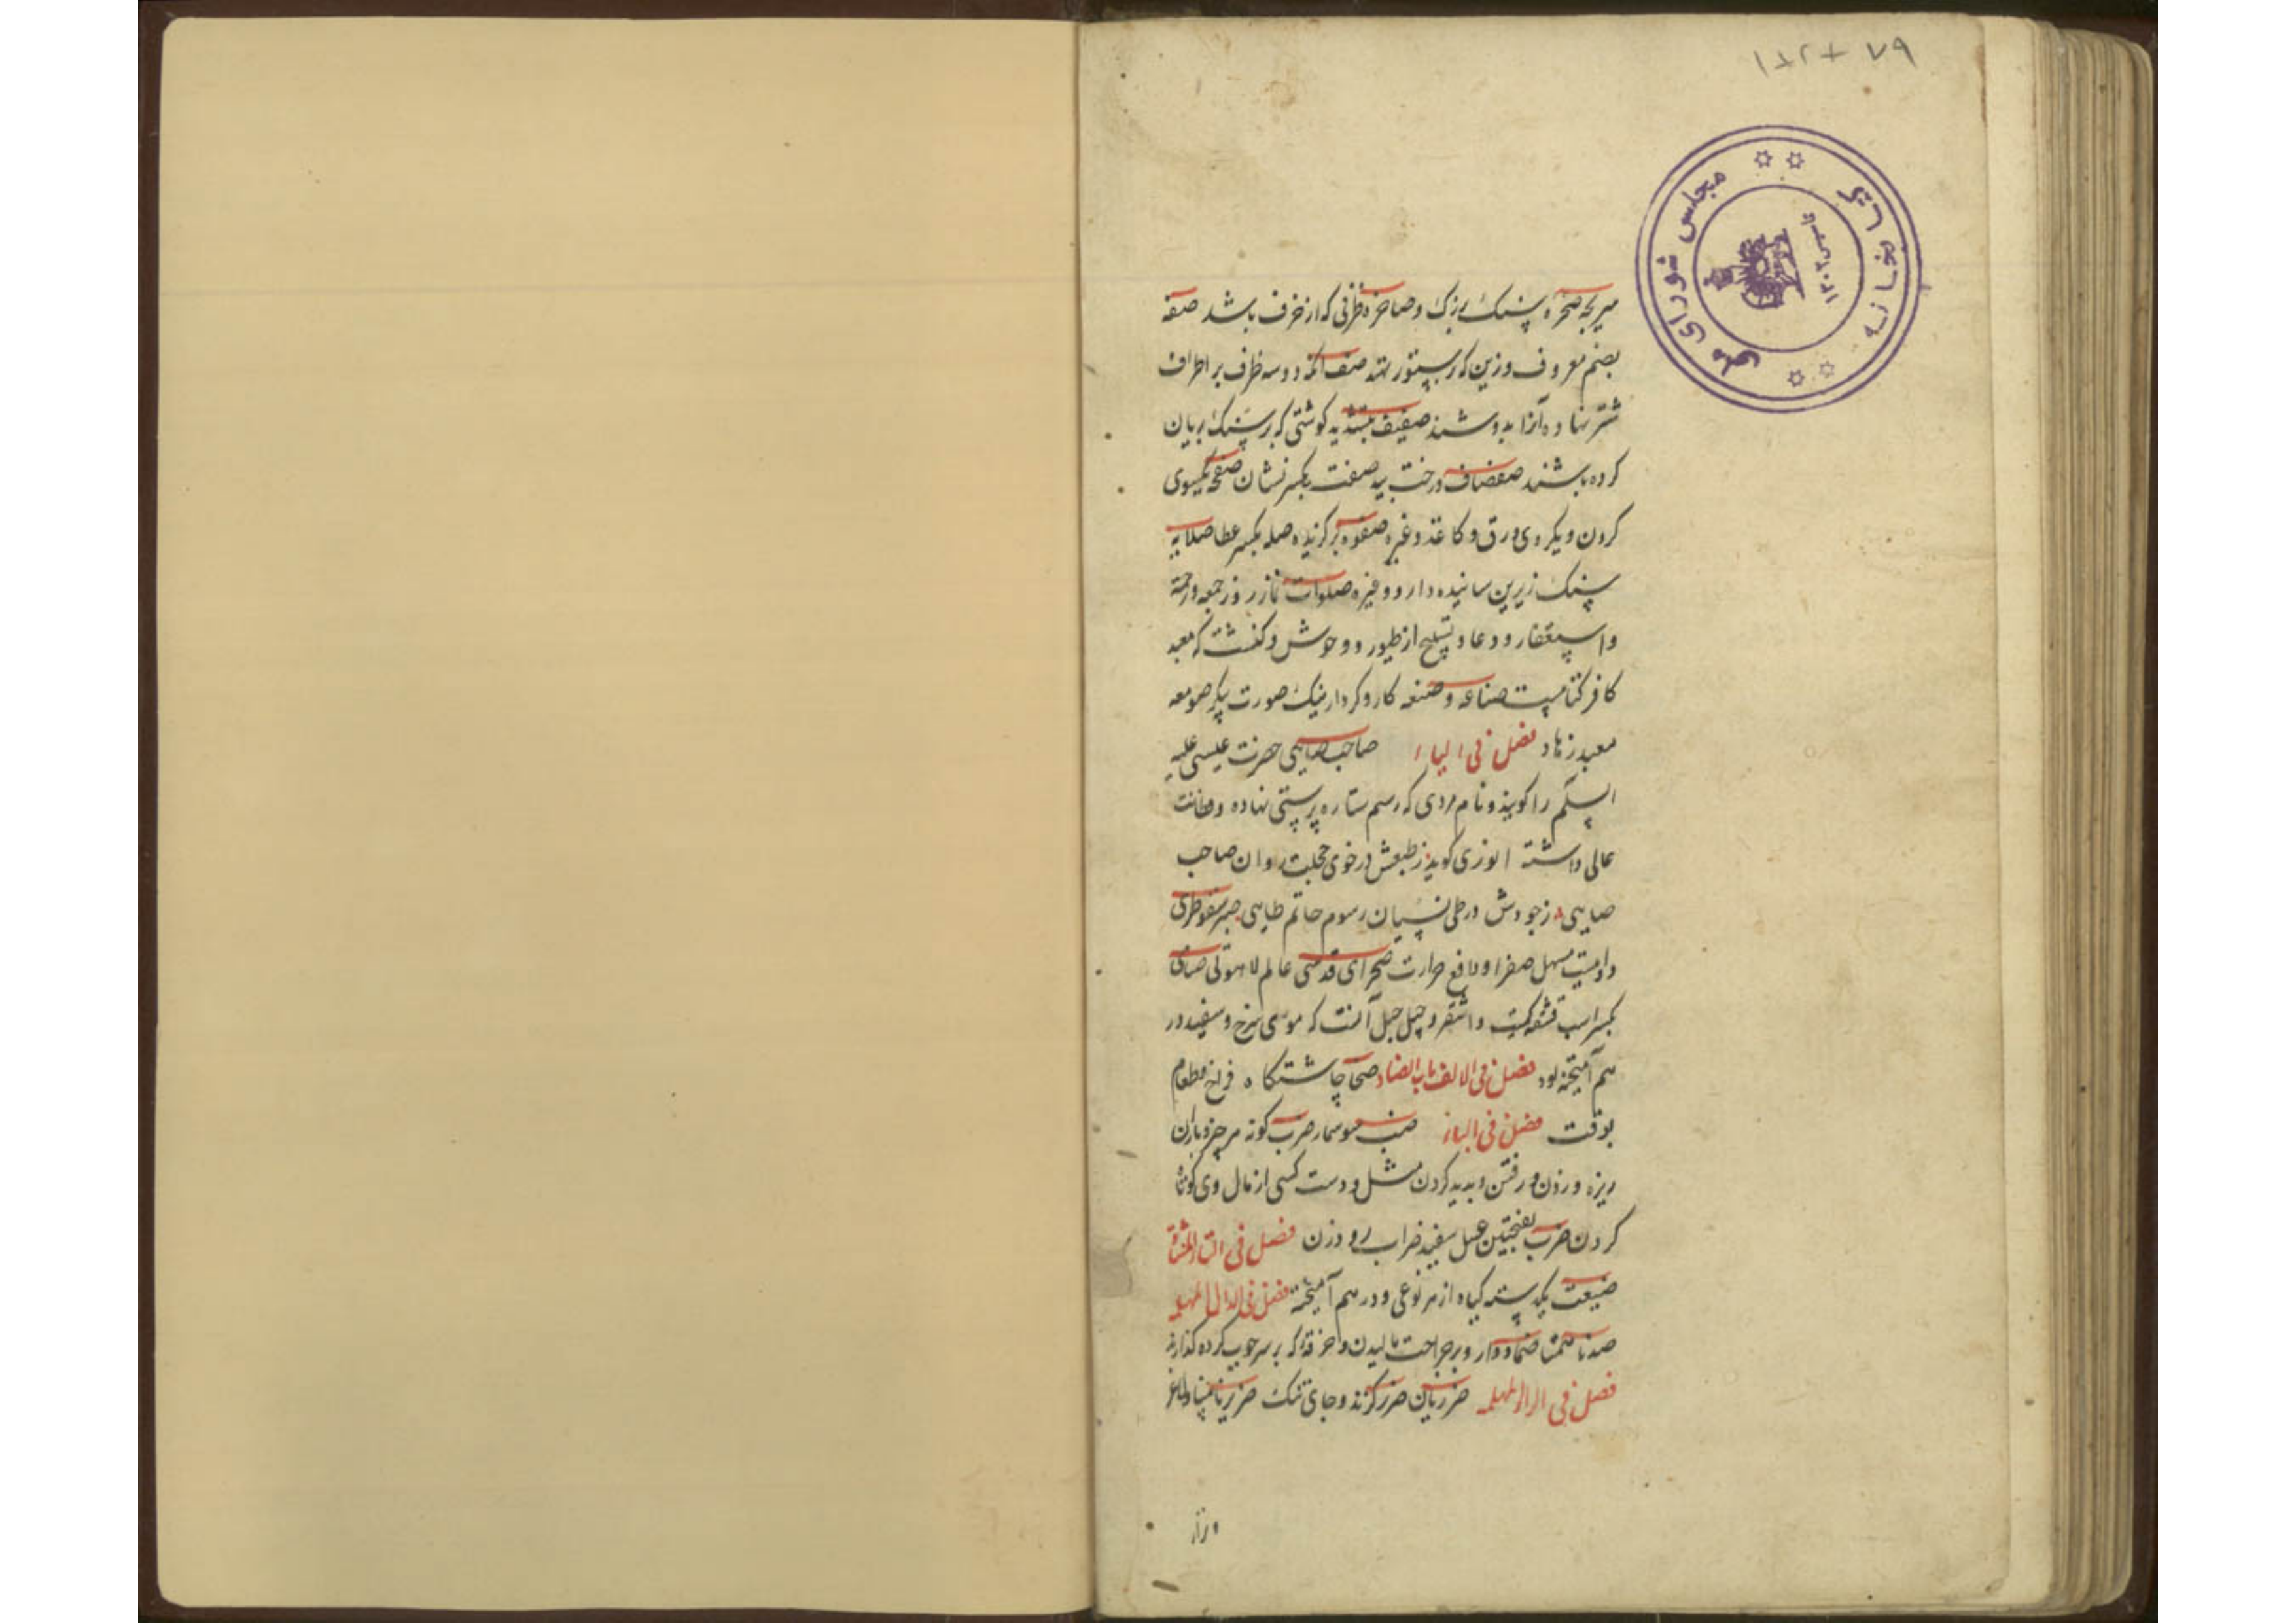 ۱۸۲۰۷۹
کتابخانه مجلس شورای ملی
۱۳۰۲
صخره سنک بزرک و صاخره ظرفی که از خزف باشد صفه
بضم معروف و زین که بر ستور نهند صنف آنکه دو سه ظرف بر اطراف
شتر نهاده آنرا بدوشند صفیف بتشدید کوشتی که بر سنک بریان
کرده باشند صفصاف درخت بید صفت بکسر نشان صفح یکسوی
کردن و یکروی ورق و کاغذ و غیره صفوه برکزیده صله بکسر عطا صلابه
سنک زیرین ساینده دارو و غیره صلوات نماز روز جمعه و رحمة
و استغفار و دعا و تسبیح از طیور و وحوش و کنشت که معبد
کافر کتابیست صناعه و صنعه کار و کردار نیک صورت پیکر صومعه
معبد زهاد فصل فی الیاء صاحب صابی حضرت عیسی علیه
السلم را کویند و نام مردی که رسم ستاره پرستی نهاده و فطانت
عالی داشته انوری کوید ز طبعش در خوی خجلت روان صاحب
صابی ز جودش در طی نسیان رسوم حاتم طایی صبر سقوطری
داروئیست مسهل صفرا و دافع حرارت صحرای قدسی عالم لاهوتی صنابی
بکسر اسب و اشقر و آنست که موی سرخ و سفید در
هم آمیخته بود فصل فی الالف باب الضاد ضحا چاشتکاه فراخ و طعام
بوقت فصل فی الباء ضب سوسمار ضرب کونه هر چیز و باران
ریزه و زدن و رفتن و پدید کردن مثل و دست کسی از مال وی کوتاه
کردن ضرب بفتحتین عسل سفید ضراب رود زن فصل فی التاء المثناة
یکدسته کیاه از هر نوعی و در هم آمیخته فصل فی الدال المهمله
ضد ناهمتا ضماد دارو بر جراحت مالیدن و خرقه که بر سر چوب کرده کذارند
فصل فی الراء المهمله ضر زیان ضرر کزند و جای تنک ضریر نابینا و لاغر